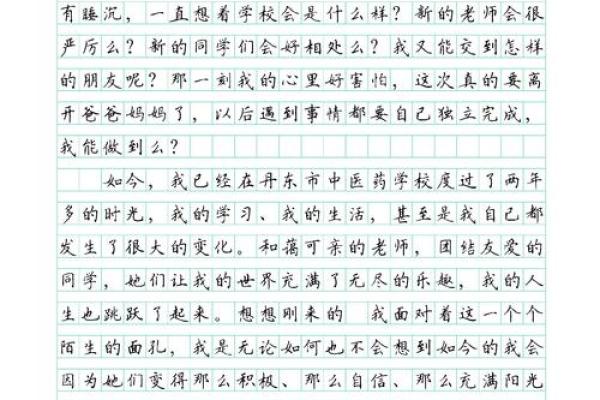 有睡沉，一直想着学校会是什么样？新的老师会很
严厉么？新的同学们会好相处么？我又能交到怎样
的朋友呢？那一刻我的心里好害怕，这次真的要离
开爸爸妈妈了，以后遇到事情都要自己独立完成，
我能做到么？
如今，我已经在丹东市中医药学校度过了两年
多的时光，我的学习、我的生活，甚至是我自己都
发生了很大的变化。和蔼可亲的老师，团结友爱的
同学，她们让我的世界充满了无尽的乐趣，我的人
生也跳跃了起来。想想刚来的 我面对着这一个个
陌生的面孔，我是无论如何也不会想到如今的我会
因为她们变得那么积极、那么自信、那么充满阳光